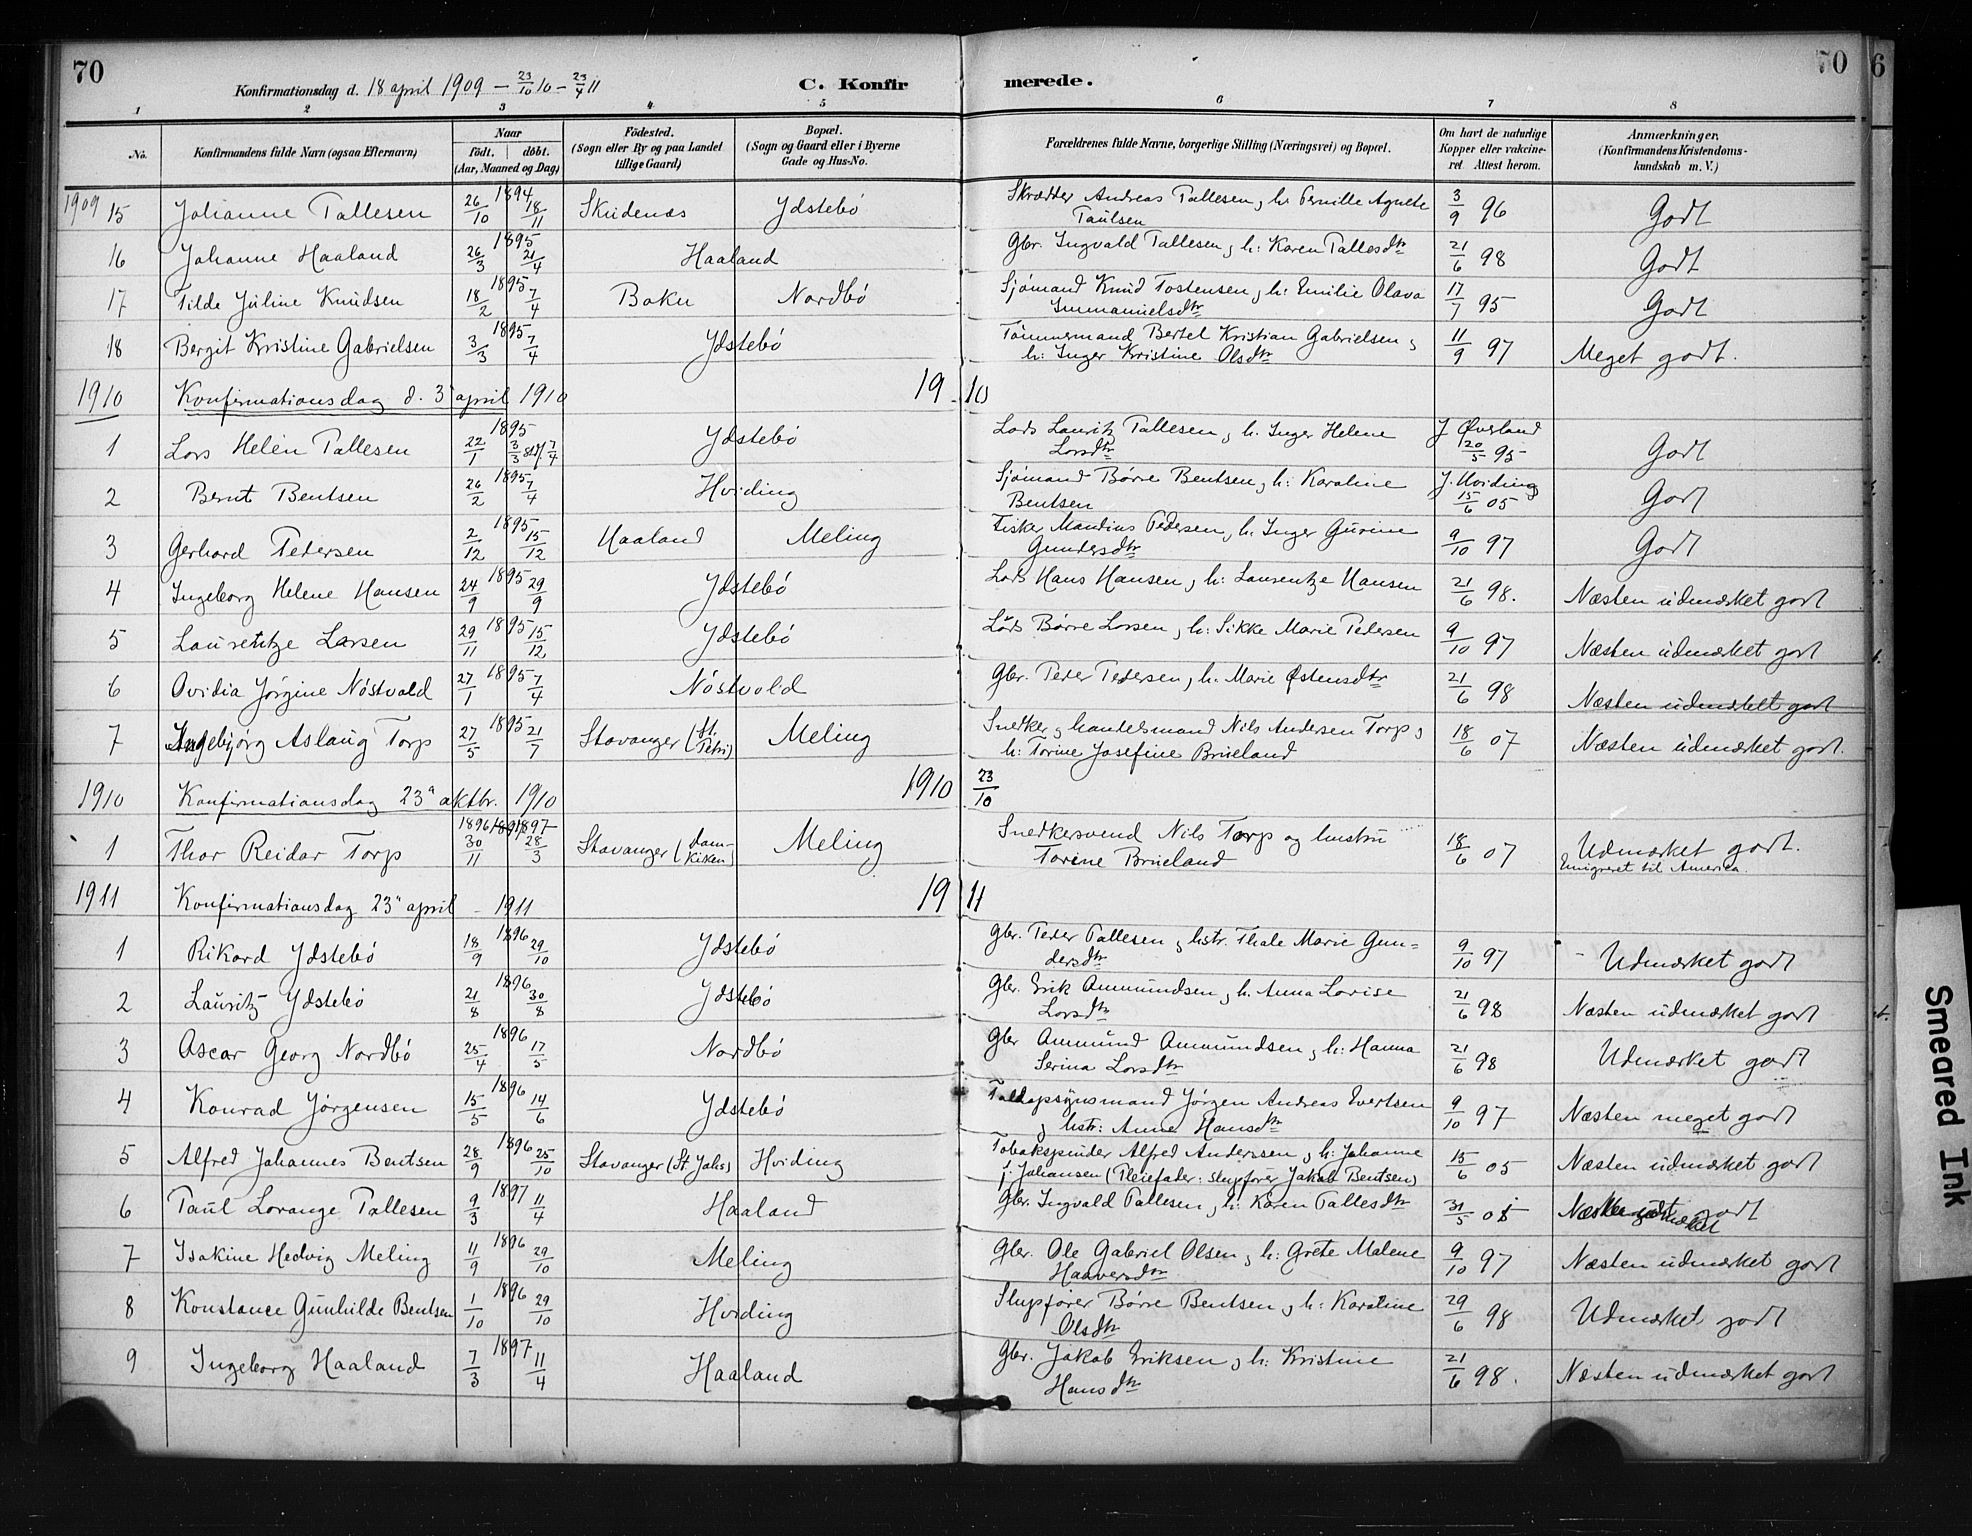 70
Konfirmationsdag d. 18 april 1909 – 23/10 10 – 23/4 11
C. Konfirmerede.
70
1 2 3 4 5 6 7 8
No. Konfirmandens fulde Navn (ogsaa Efternavn) Naar født. døbt. (Aar, Maaned og Dag) Fødested. (Sogn eller By og paa Landet tillige Gaard) Bopæl. (Sogn og Gaard eller i Byerne Gade og Hus-No. Forældrenes fulde Navne, borgerlige Stilling (Næringsvei) og Bopæl. Om havt de naturlige Kopper eller vakcineret. Attest herom. Anmærkninger. (Konfirmandens Kristendomskundskab m. V.)
1909 15 Johanne Pallesen 1894 26/10 18/11 Skudenæs Ydstebø Skrædder Andreas Pallesen, h: Pernille Agnete Paulsen 3/9 96 Godt
16 Johanne Haaland 1895 26/3 21/4 Haaland Gbr. Ingvald Pallesen, h: Karen Pallesdtr 21/6 98 Godt
17 Tilda Juline Knudsen 1895 18/2 7/4 Bokn Nordbø Sjømand Knud Tostensen, h: Emilie Olava Immanuelsdtr 17/7 95 Godt
18 Bergit Kristine Gabrielsen 1895 3/3 7/4 Ydstebø Tømmermand Bertel Kristian Gabrielsen, h: Inger Kristine Olsdtr 11/9 97 Meget godt.
1910 Konfirmationsdag d. 3 april 1910 1910
1 Lars Helen Pallesen 1895 22/1 3/3 7/4 Ydstebø Lods Lauritz Pallesen, h. Inger Helene Larsdtr J Øverland 20/5 95 Godt
2 Bernt Bentsen 1895 26/2 7/4 Hviding Sjømand Børre Bentsen, h: Karoline Bentsen J. Hviding 15/6 05 Godt
3 Gerhard Pedersen 1895 2/12 15/12 Haaland Meling Fisker Mandius Pedersen, h. Inger Gurine Gundersdtr 9/10 97 Godt
4 Ingeborg Helene Hansen 1895 24/9 29/9 Ydstebø Lods Hans Hansen, h: Laurentze Hansen 21/6 98. Næsten udmærket godt
5 Laurentze Larsen 1895 29/11 15/12 Ydstebø Lods Børre Larsen, h: Sikke Marie Pedersen 9/10 97 Næsten udmærket godt
6 Ovidia Jørgine Nøstvold 1895 27/1 7/4 Nøstvold Gbr. Peder Pedersen, h. Marie Østensdtr 21/6 98 Næsten udmærket godt
7 Ingebjørg Aslaug Torp 1895 27/5 21/7 Stavanger (St. Petri) Meling Snedker, handelsmand Nils Andersen Torp, h: Torine Josefine Brueland 18/6 07 Næsten udmærket godt.
1910 Konfirmationsdag 23 oktbr. 1910 1910 23/10
1 Thor Reidar Torp 1896 1897 30/11 28/3 Stavanger (domkirken) Meling Snedkersvend Nils Torp og hustru Torine Brueland 18/6 07 Udmærket godt.
Emigreret til America.
1911 Konfirmationsdag 23 april – 1911 1911
1 Rikard Ydstebø 1896 18/9 29/10 Ydstebø Gbr. Peder Pallesen, hstr. Thale Marie Gundersdtr 9/10 97 Udmærket godt
2 Lauritz Ydstebø 1896 21/8 30/8 Ydstebø Gbr. Erik Ammundsen, h. Anna Lovise Larsdtr 21/6 98 Næsten udmærket godt
3 Oscar Georg Nordbø 1896 25/4 17/5 Nordbø Gbr Ammund Ammundsen, h: Hanna Serina Larsdtr 21/6 98 Udmærket godt
4 Konrad Jørgensen 1896 15/5 14/6 Ydstebø Toldopsynsmand Jørgen Andreas Evertsen, hstr: Anne Hansdtr 9/10 97 Næsten meget godt
5 Alfred Johannes Bentsen 1896 28/9 25/10 Stavanger (St. Johs) Hviding Tobakspinder Alfred Anderssen, h: Johanne f. Johansen (Pleiefader: skipfører Jakob Bentsen) 15/6 05 Næsten udmærket godt
6 Paul Lorange Pallesen 1897 9/3 11/4 Haaland Gbr. Ingvald Pallesen, h: Karen Pallesdtr 31/5 Næsten udmærket godt
7 Isakine Hedvig Meling 1896 11/9 29/10 Meling Gbr. Ole Gabriel Olsen, h: Grete Malene Haaversdtr 9/10 97 Næsten udmærket godt
8 Konstance Gunhilde Bentsen 1896 1/10 29/10 Hviding Slupfører Børre Bentsen, h: Karoline Olsdtr 29/6 98 Udmærket godt
9 Ingeborg Haaland 1897 7/3 11/4 Haaland Gbr. Jakob Eriksen, h: Kristine Hansdtr 21/6 98. Næsten udmærket godt
6
Smeared Ink